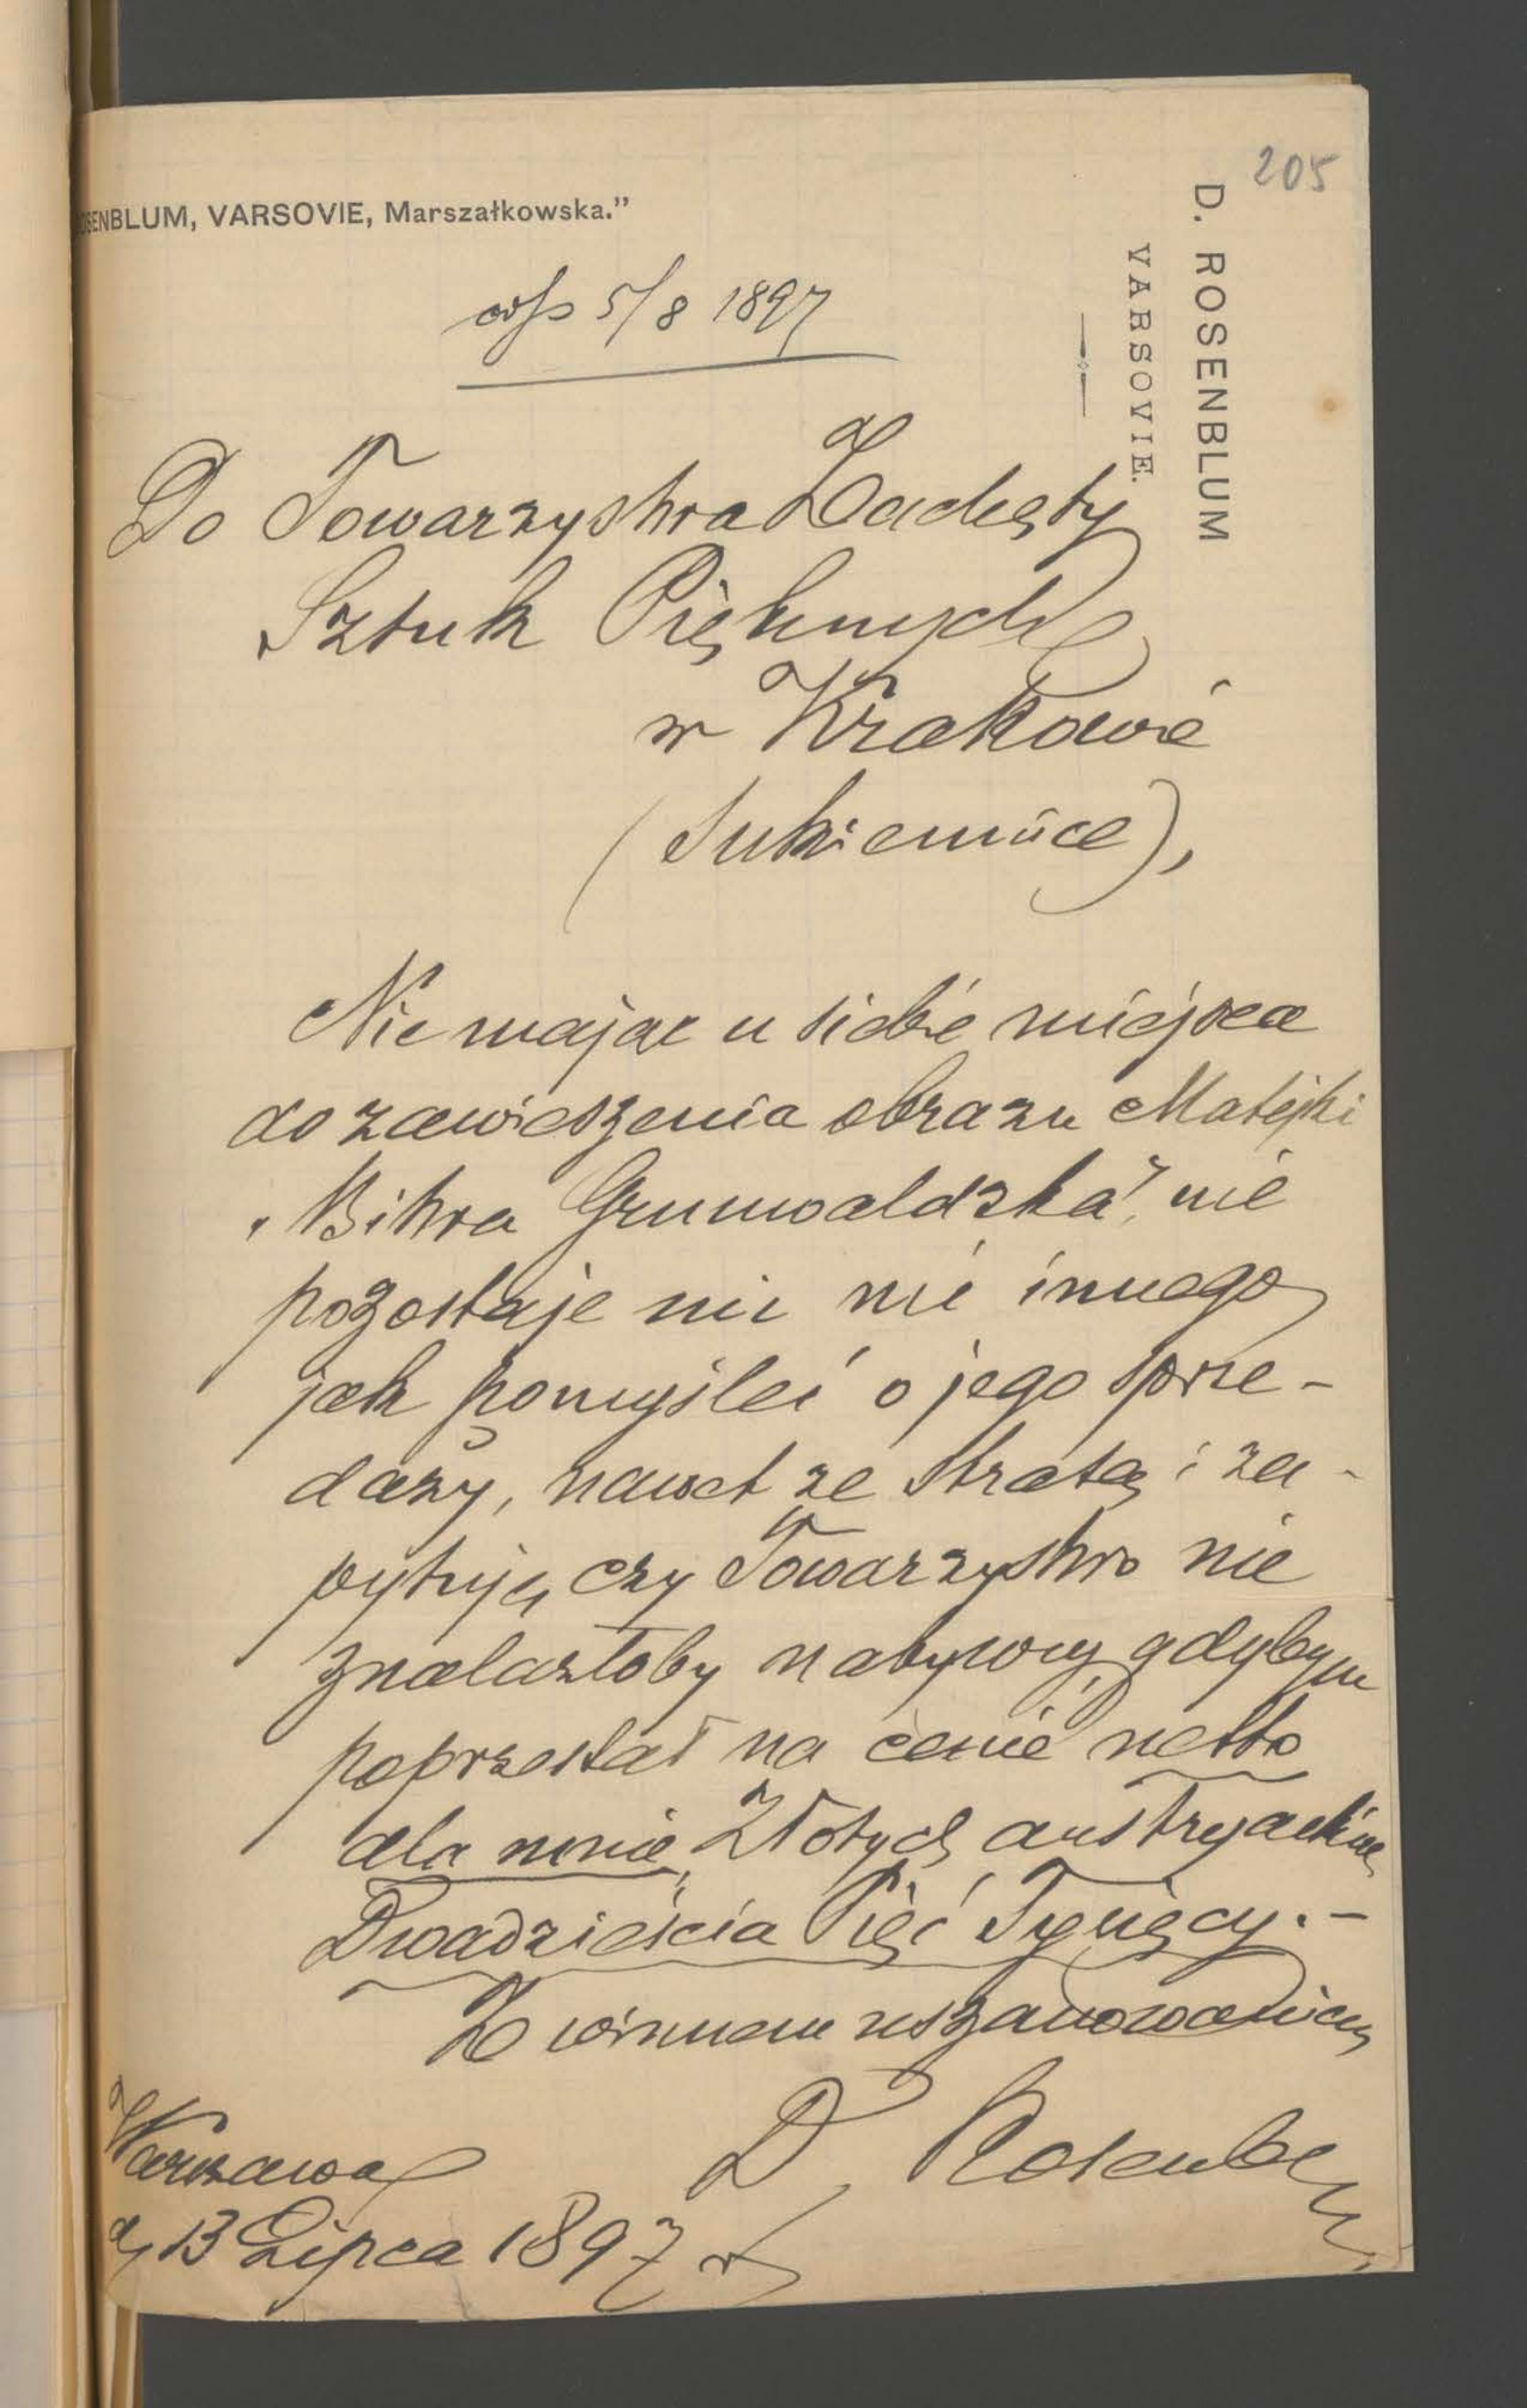 205
D. ROSENBLUM
VARSOVIE.
SENBLUM, VARSOVIE, Marszałkowska."
5/8 1897
Do Towarzystwa Zachęty
Sztuk Pięknych
w Krakowie
(Sukiennice),
Nie mając u siebie miejsca
do zawieszenia obrazu Matejki
"Bitwa Grunwaldzka", nie
pozostaje mi nic innego
jak pomyśleć o jego sprze-
daży, nawet ze stratą i za-
pytuję, czy Towarzystwo nie
znalazłoby nabywcy, gdybym
poprzestał na cenie netto
dla mnie, Złotych austryackich
Dwadzieścia Pięć Tysięcy.-
Z winnem uszanowaniem
D. Rosenblum
Warszawa
d, 13 Lipca 1897 r